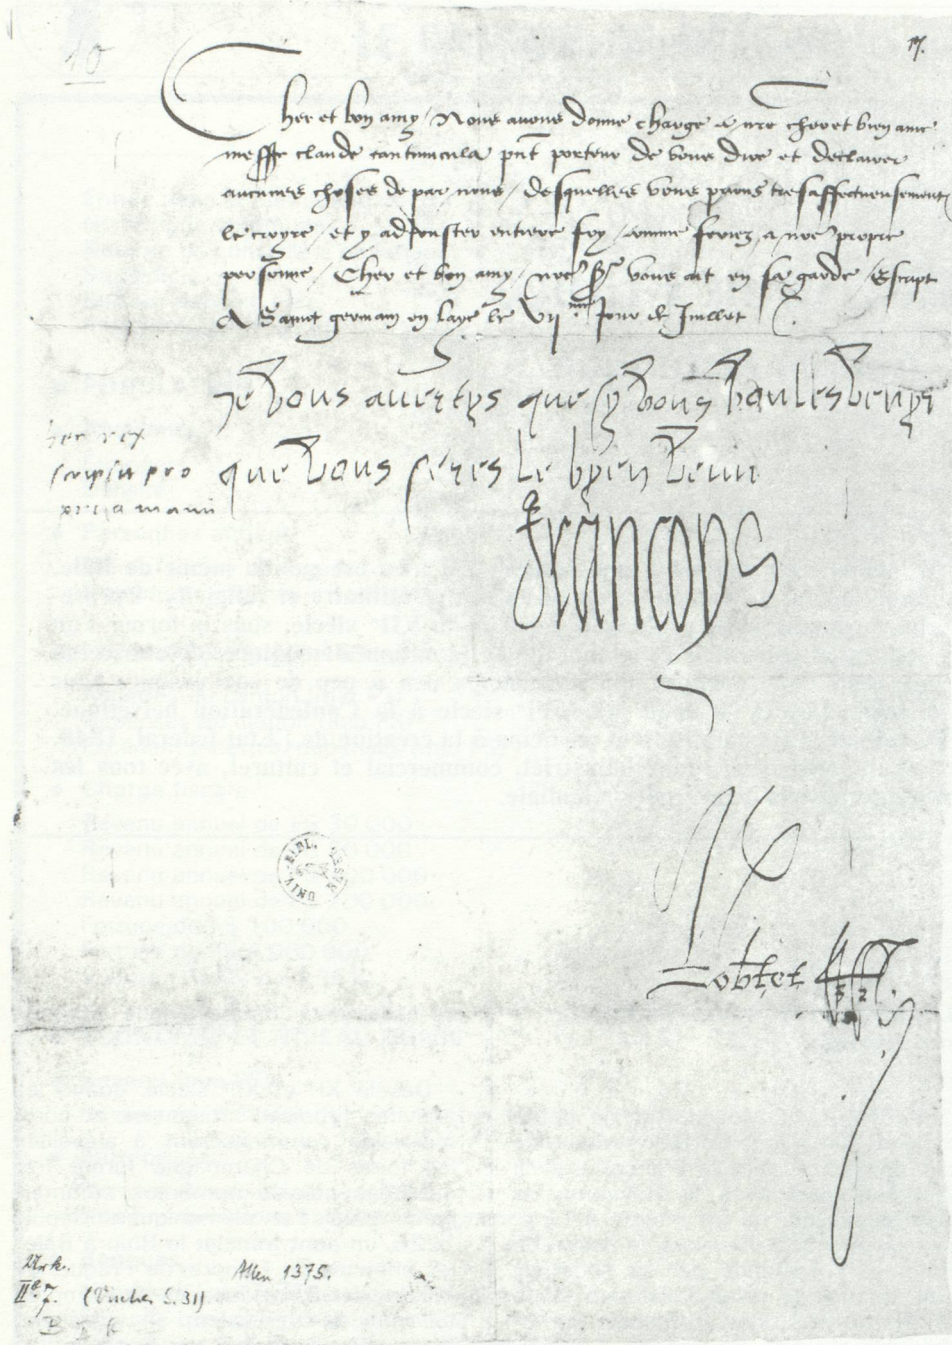 10
17.
Cher et bon amy / Nous avons donne charge a nre cher et bien ame
messe claude cantiuncula pnt porteur de vous dire et declairer
aucunes choses de par nous / desquelles vous prions tresaffectueusement
le croyre / et y adjouster entiere foy / comme feriez a nre propre
personne / Cher et bon amy / nre sr vous ait en sa garde / Escript
A Saint germain en laye le vii jour de Juillet
Je vous avertys que sy vous voules venyr
que vous seres le byen venu
hec rex
scripsit pro
pria manu
francoys
UNIV. BIBL.
Robertet
Urk.
IIa. 7.
Allen 1375.
(Vischer S. 31)